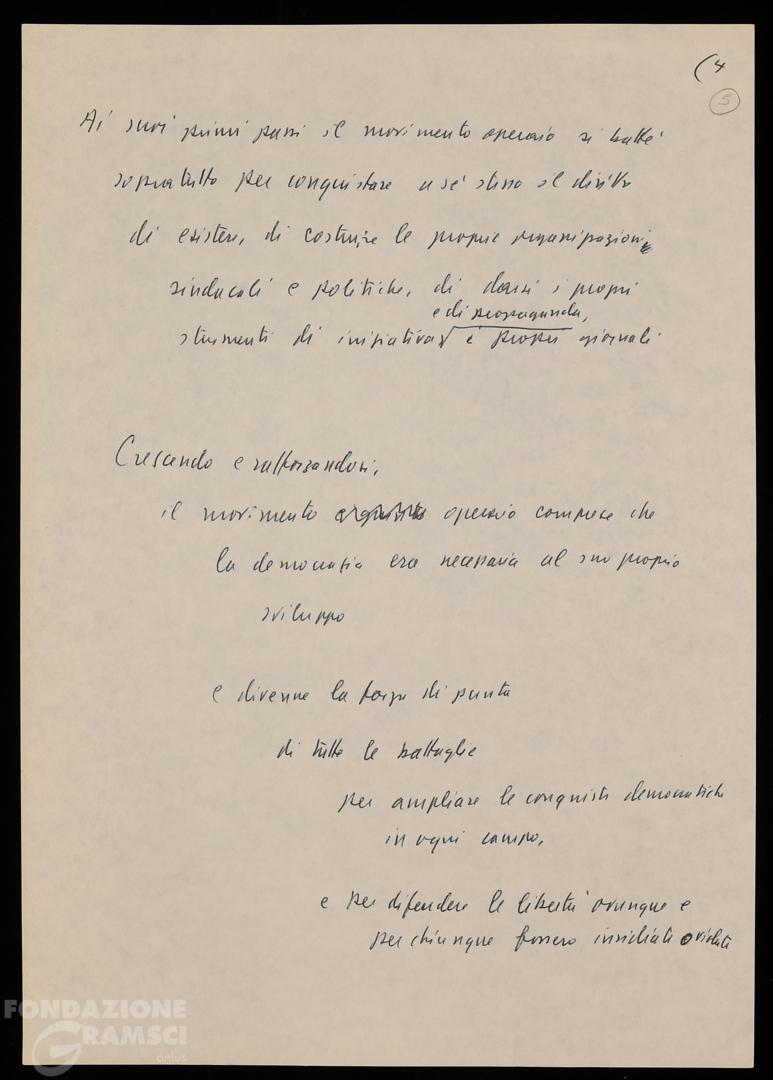 (4
5
Ai suoi primi passi il movimento operaio si batté
sopratutto per conquistare a sé stesso il diritto
di esistere, di costruire le proprie organizzazioni
sindacali e politiche, di darsi i propri
e di propaganda,
strumenti di iniziativa i propri giornali.
Crescendo e rafforzandosi,
il movimento operaio comprese che
la democrazia era necessaria al suo proprio
sviluppo
e divenne la forza di punta
di tutte le battaglie
per ampliare le conquiste democratiche
in ogni campo,
e per difendere le libertà ovunque e
per chiunque fossero insidiate o violate
FONDAZIONE
GRAMSCI
onlus